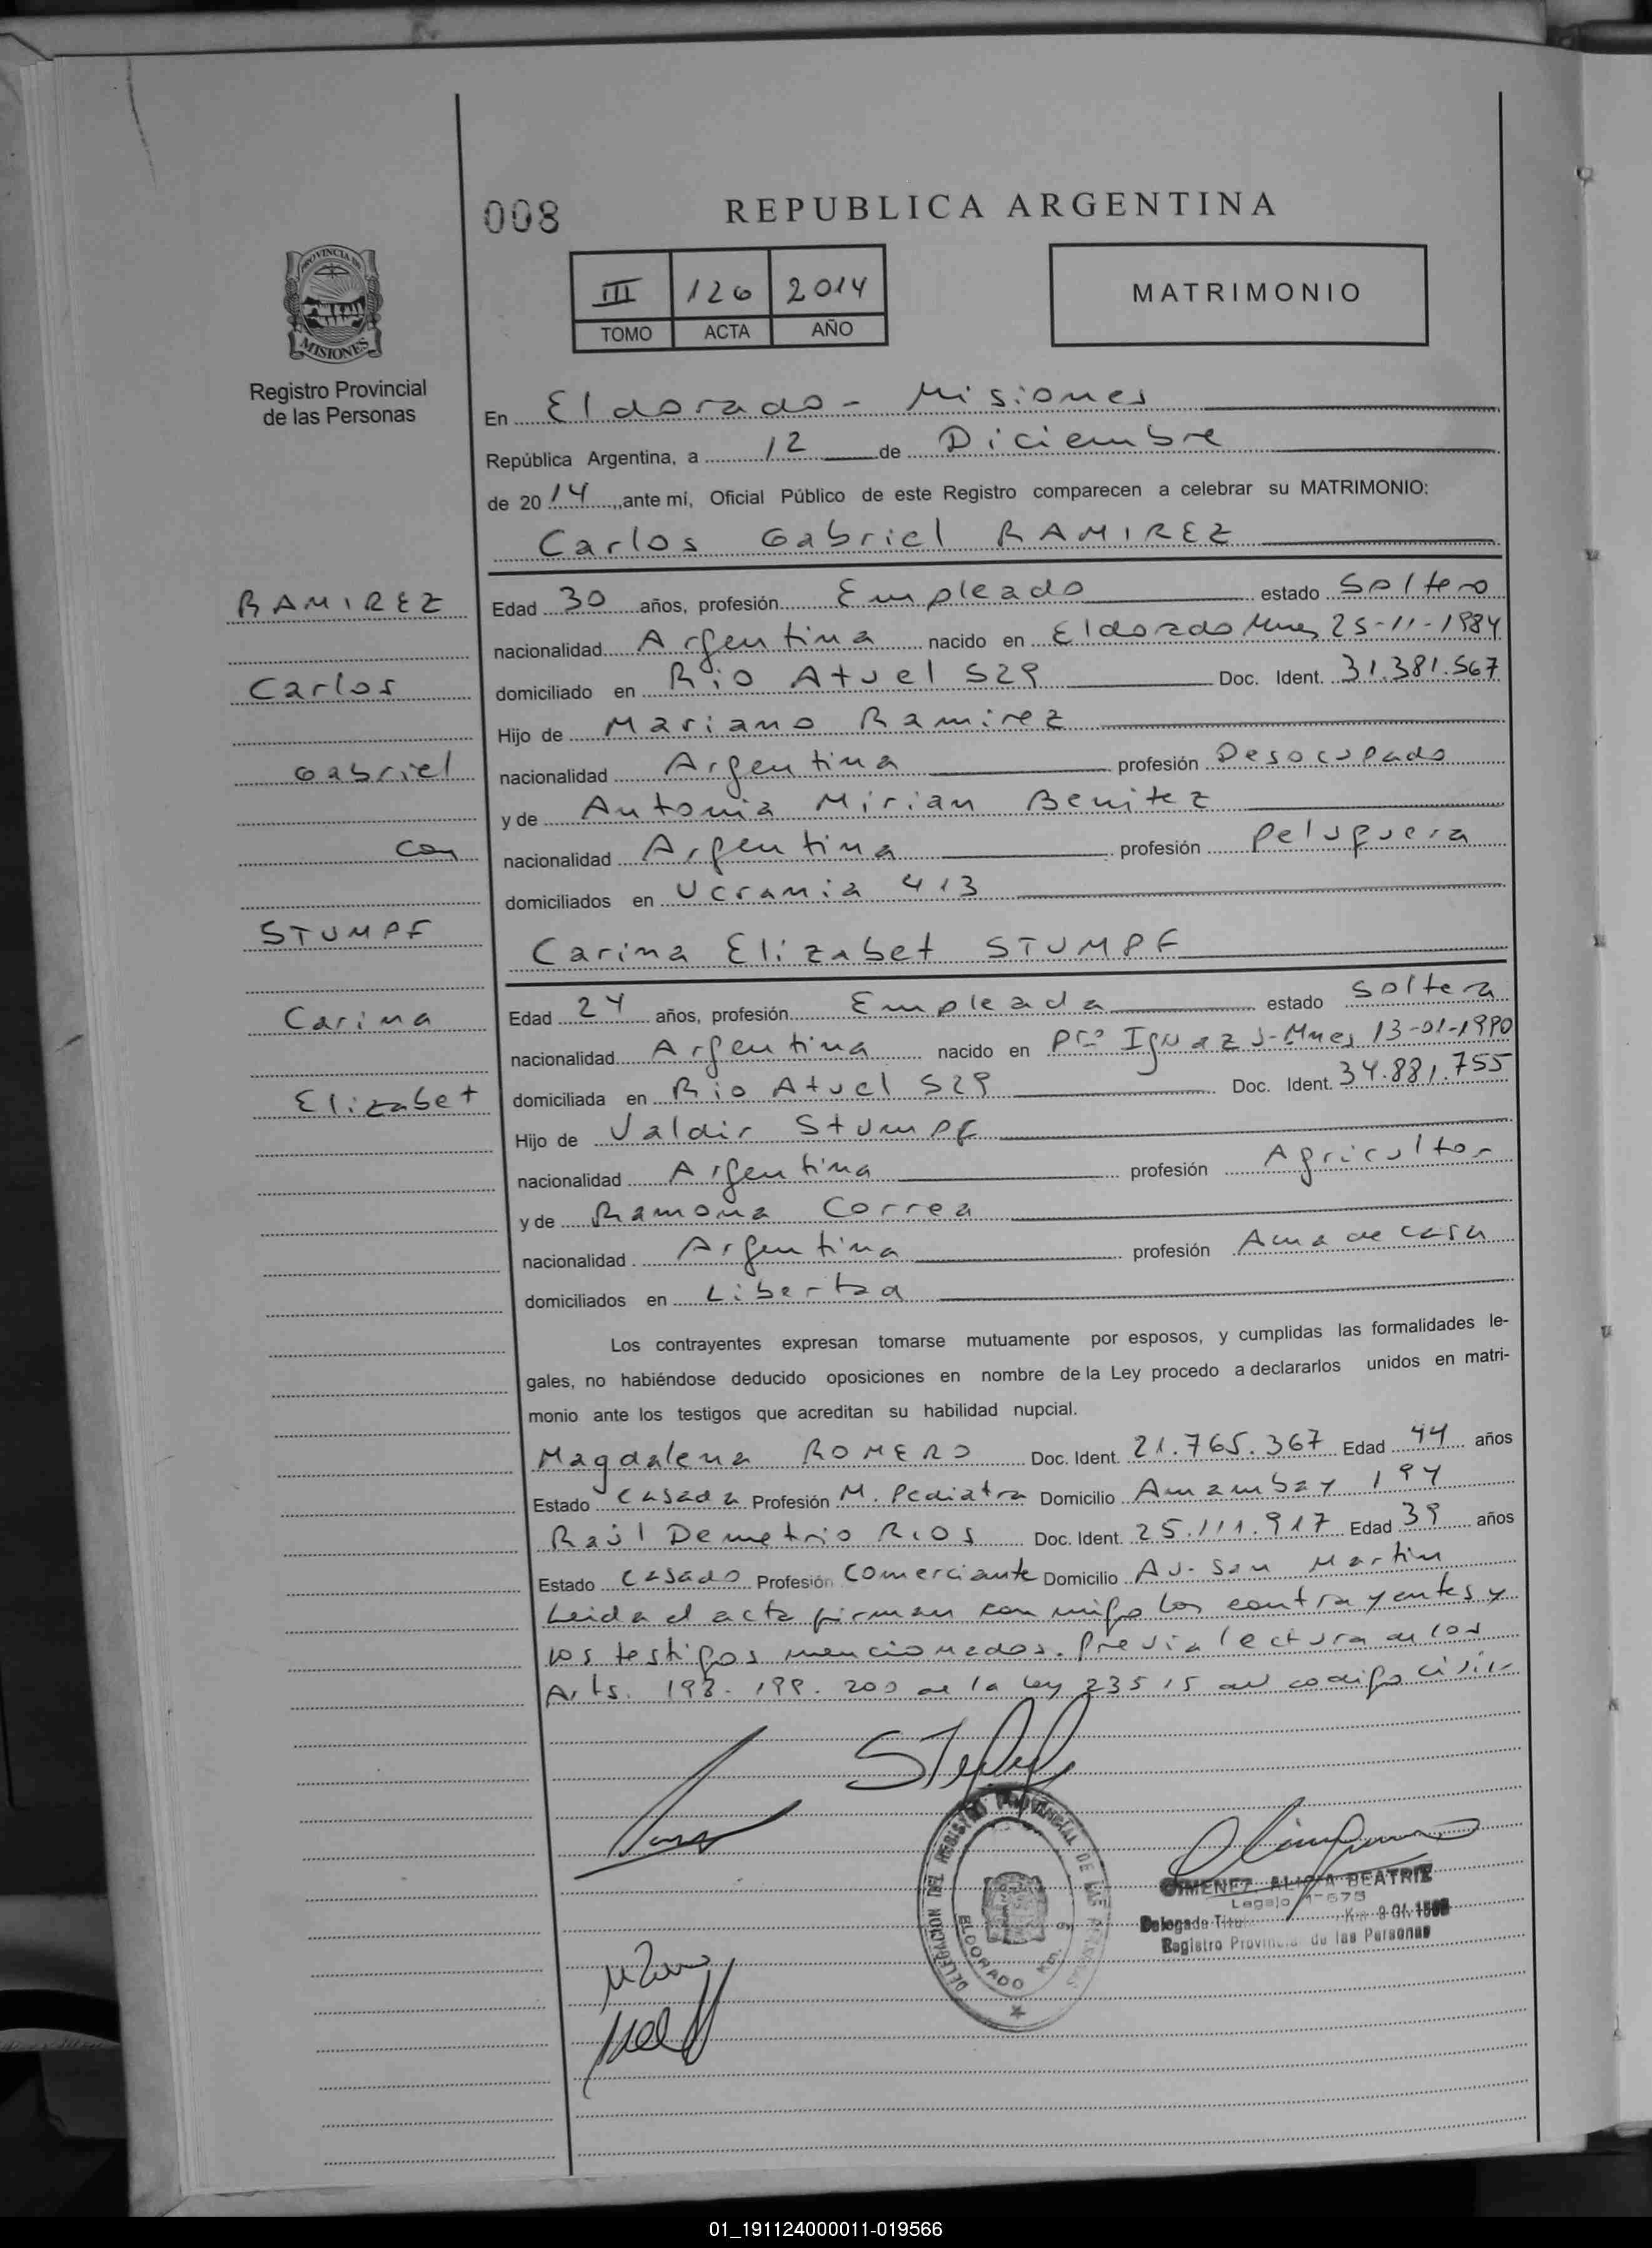 008
REPUBLICA ARGENTINA
PROVINCIA DE
MISIONES
Registro Provincial
de las Personas
III 126 2014
TOMO ACTA AÑO
MATRIMONIO
En Eldorado - Misiones
República Argentina, a 12 de Diciembre
de 2014, ante mí, Oficial Público de este Registro comparecen a celebrar su MATRIMONIO:
Carlos Gabriel RAMIREZ
RAMIREZ
Carlos
Gabriel
con
STUMPF
Carina
Elizabet
Edad 30 años, profesión Empleado estado Soltero
nacionalidad Argentina nacido en Eldorado Mnes 25-11-1984
domiciliado en Rio Atuel 529 Doc. Ident. 31.381.567
Hijo de Mariano Ramirez
nacionalidad Argentina profesión Desocupado
y de Antonia Mirian Benitez
nacionalidad Argentina profesión Peluquera
domiciliados en Ucrania 413
Carina Elizabet STUMPF
Edad 24 años, profesión Empleada estado Soltera
nacionalidad Argentina nacido en Pto Iguazú-Mnes 13-01-1990
domiciliada en Rio Atuel 529 Doc. Ident. 34.881.755
Hijo de Valdir Stumpf
nacionalidad Argentina profesión Agricultor
y de Ramona Correa
nacionalidad Argentina profesión Ama de casa
domiciliados en Libertad
Los contrayentes expresan tomarse mutuamente por esposos, y cumplidas las formalidades le-
gales, no habiéndose deducido oposiciones en nombre de la Ley procedo a declararlos unidos en matri-
monio ante los testigos que acreditan su habilidad nupcial.
Magdalena ROMERO Doc. Ident. 21.765.367 Edad 44 años
Estado Casada Profesión M. Pediatra Domicilio Amambay 194
Raúl Demetrio RIOS Doc. Ident. 25.111.917 Edad 39 años
Estado Casado Profesión Comerciante Domicilio Av. San Martin
Leida el acta firman con migo los contrayentes y
los testigos mencionados. Previa lectura de los
Arts. 198. 199. 200 de la Ley 23515 del codigo civil-
DELEGACION DEL REGISTRO PROVINCIAL DE LAS PERSONAS
ELDORADO KM. 9
GIMENEZ, ALICIA BEATRIZ
Legajo
Delegada Titular Km 9
Registro Provincial de las Personas
01_191124000011-019566